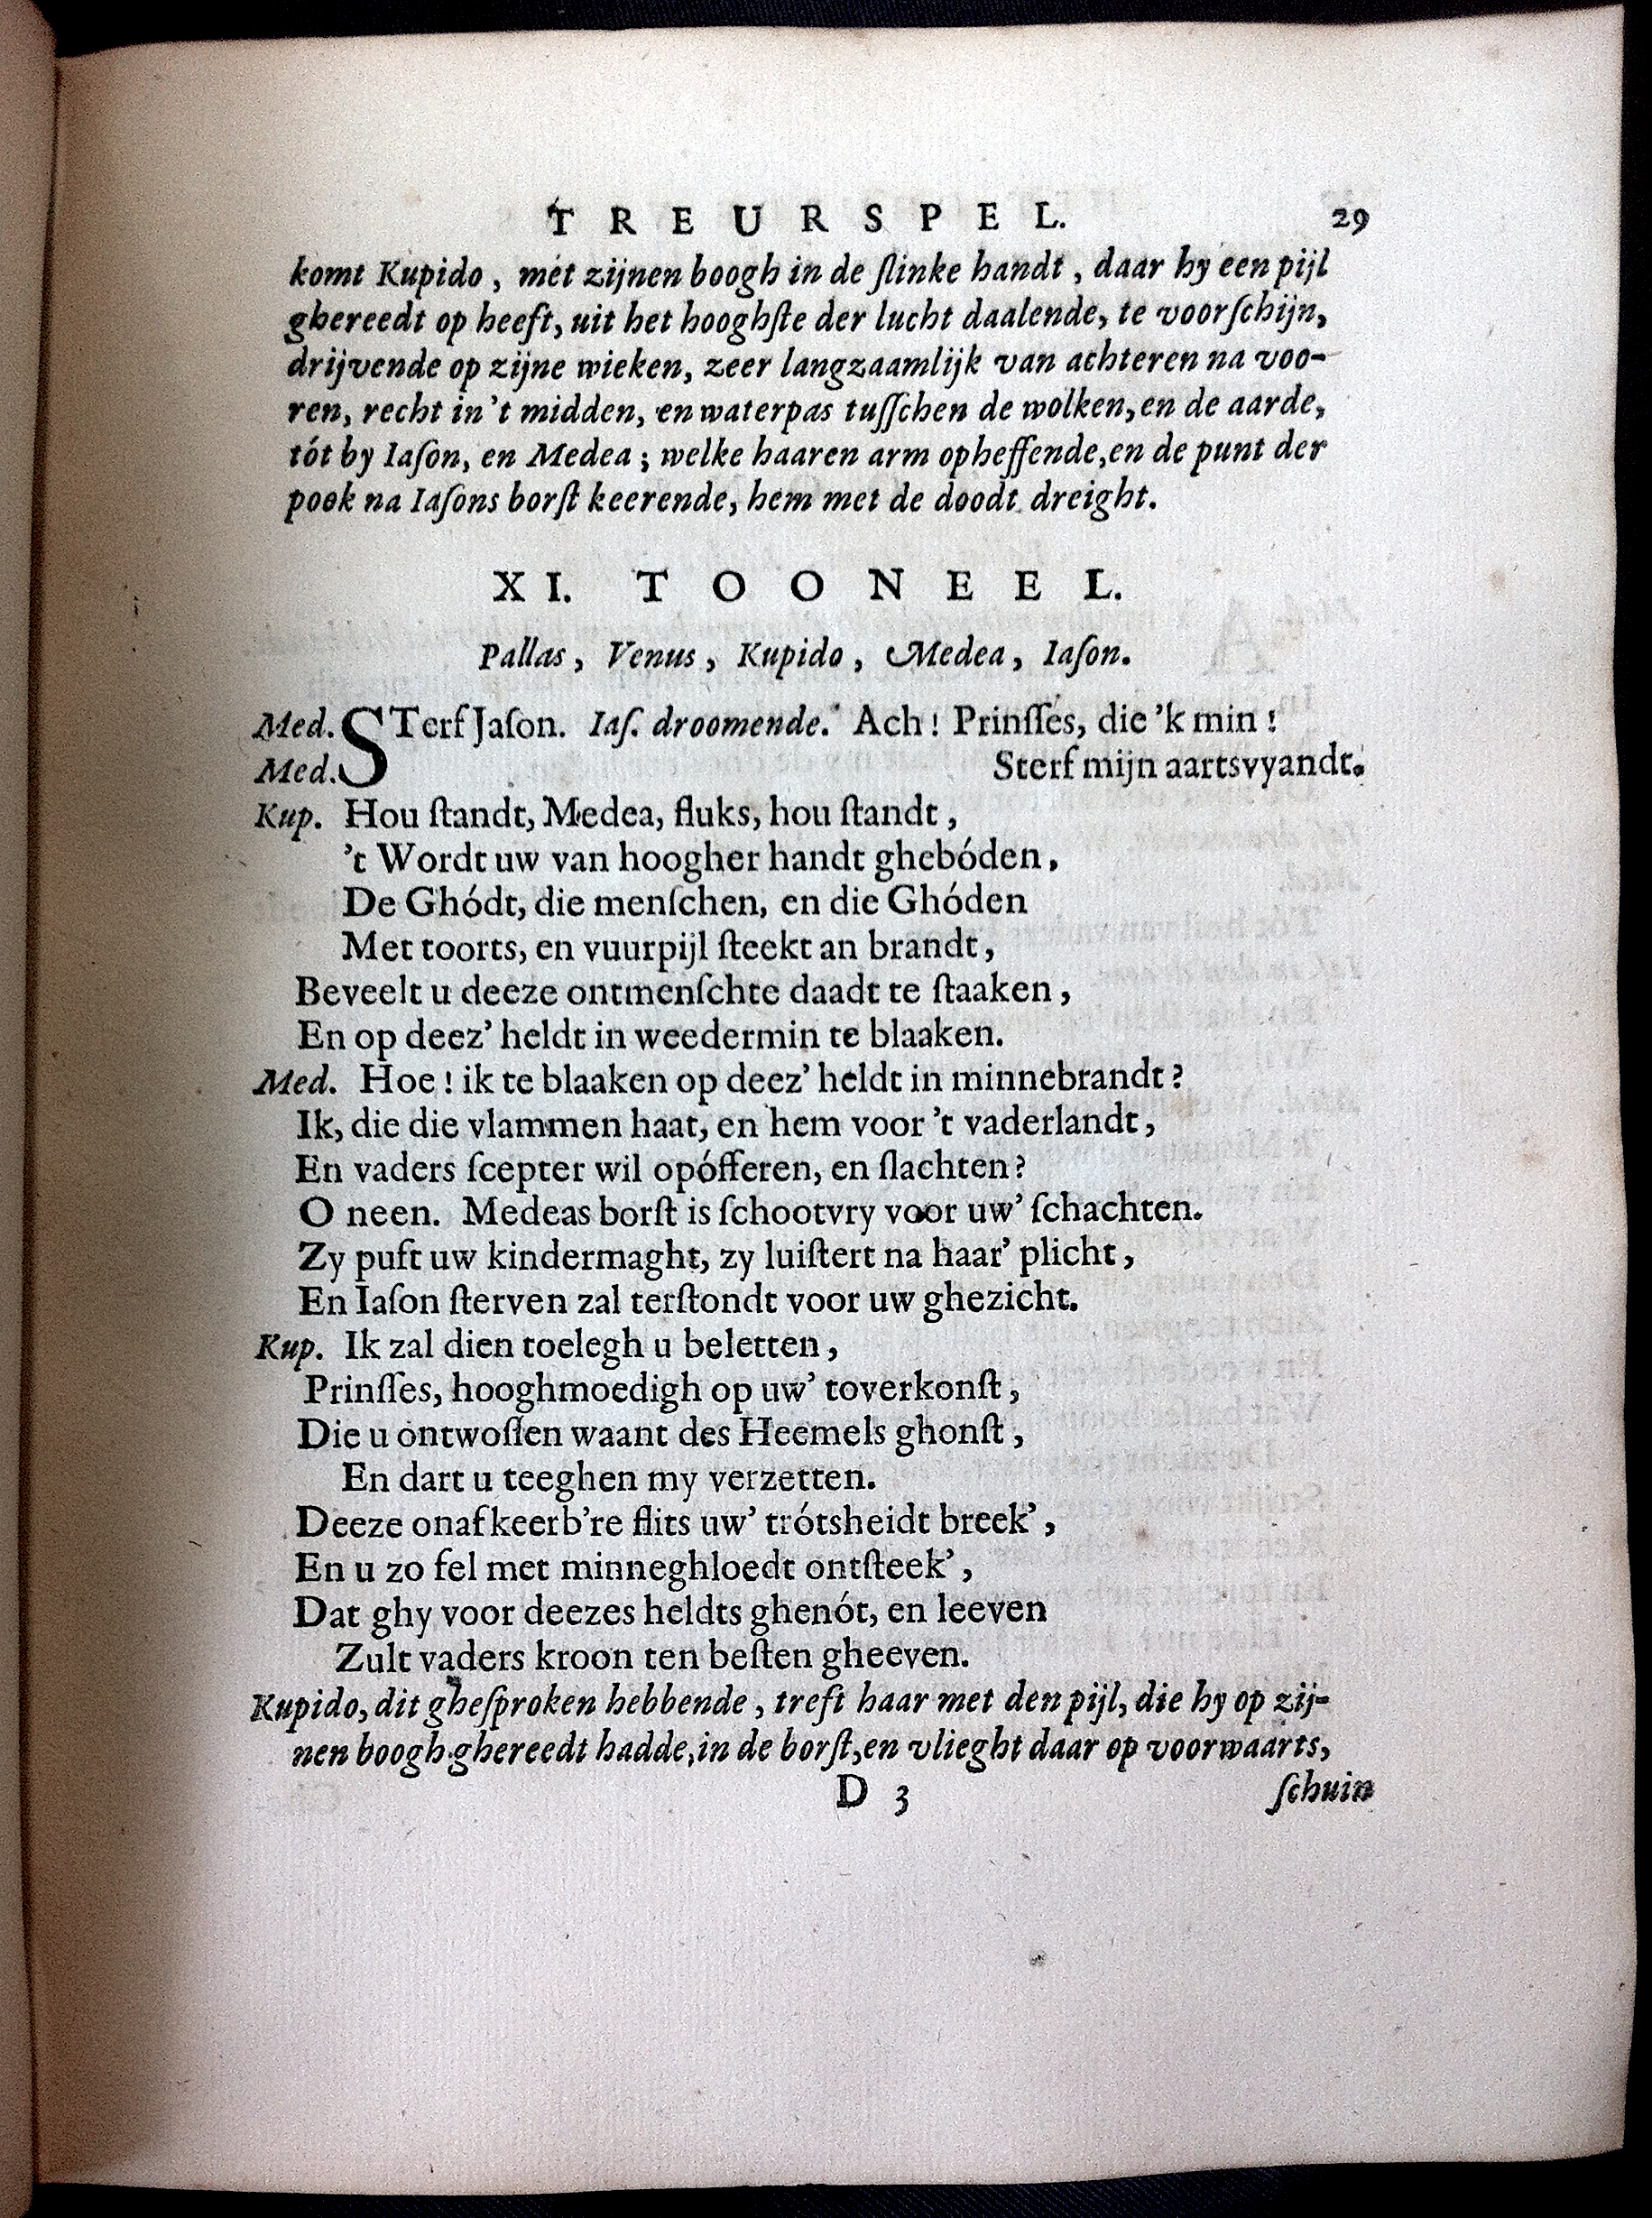 TREURSPEL. 29
komt Kupido, met zijnen boogh in de ſlinke handt, daar hy een pijl
ghereedt op heeft, uit het hooghſte der lucht daalende, te voorſchijn,
drijvende op zijne wieken, zeer langzaamlijk van achteren na voo-
ren, recht in't midden, en waterpas tuſſchen de wolken, en de aarde,
tót by Iaſon, en Medea; welke haaren arm opheffende, en de punt der
pook na Iaſons borſt keerende, hem met de doodt dreight.
XI. TOONEEL.
Pallas, Venus, Kupido, Medea, Iaſon.
Med. STerf Jaſon. Iaſ. droomende. Ach! Prinſſes, die 'k min!
Med. Sterf mijn aartsvyandt.
Kup. Hou ſtandt, Medea, fluks, hou ſtandt,
't Wordt uw van hoogher handt ghebóden,
De Ghódt, die menſchen, en die Ghóden
Met toorts, en vuurpijl ſteekt an brandt,
Beveelt u deeze ontmenſchte daadt te ſtaaken,
En op deez' heldt in weedermin te blaaken.
Med. Hoe! ik te blaaken op deez' heldt in minnebrandt?
Ik, die die vlammen haat, en hem voor 't vaderlandt,
En vaders ſcepter wil opófferen, en ſlachten?
O neen. Medeas borſt is ſchootvry voor uw' ſchachten.
Zy puft uw kindermaght, zy luiſtert na haar' plicht,
En Iaſon ſterven zal terſtondt voor uw ghezicht.
Kup. Ik zal dien toelegh u beletten,
Prinſſes, hooghmoedigh op uw' toverkonſt,
Die u ontwoſſen waant des Heemels ghonſt,
En dart u teeghen my verzetten.
Deeze onafkeerb're flits uw' trótsheidt breek',
En u zo fel met minneghloedt ontſteek',
Dat ghy voor deezes heldts ghenót, en leeven
Zult vaders kroon ten beſten gheeven.
Kupido, dit gheſproken hebbende, treft haar met den pijl, die hy op zij-
nen boogh ghereedt hadde, in de borſt, en vlieght daar op voorwaarts,
D 3 ſchuin